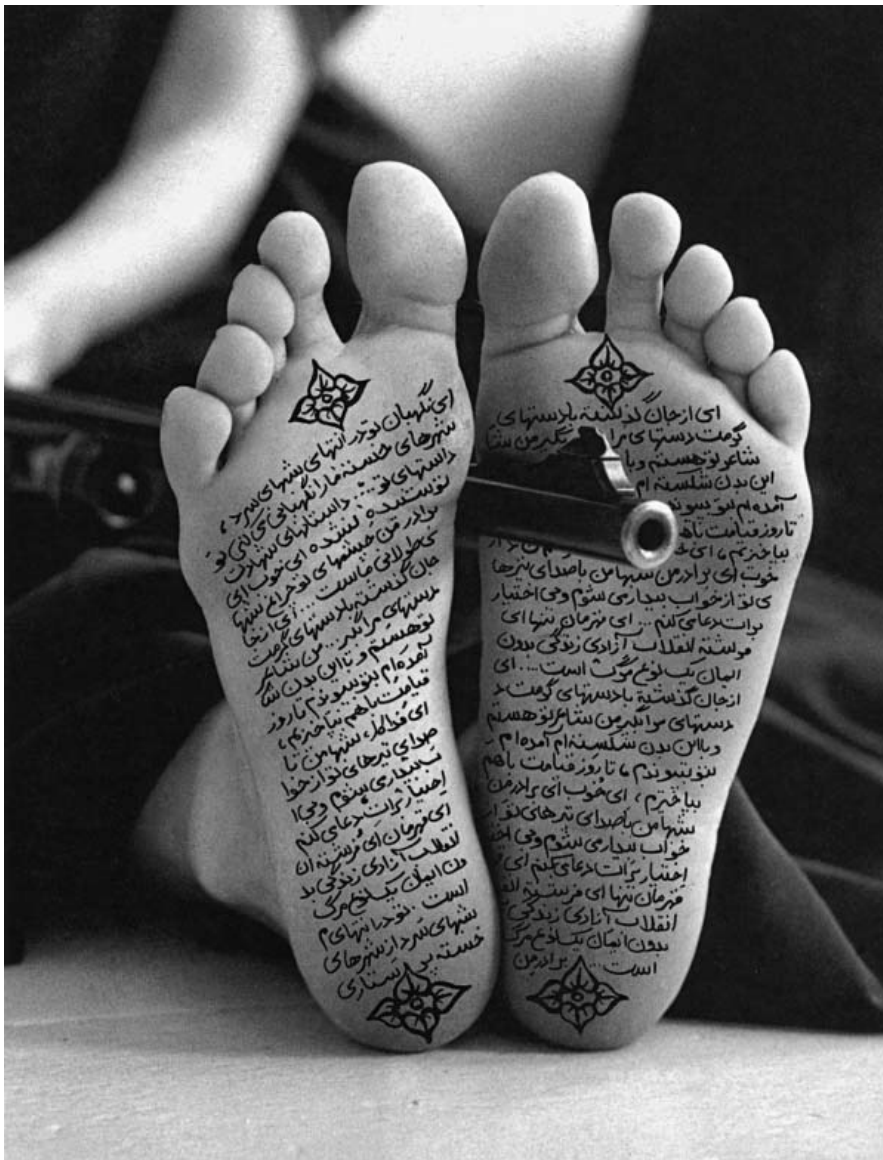 ای نگهبان تو در انتهای شبهای سرد،
شهرهای خسته ما را نگهبانی می کنی تو
داستهای تو... داستانهای شهادت
نوشته شده ای خوب ای
برادر من چشمهای تو چراغ شبها
ی طولانی ماست... ای از جا
جان گذشته با دستهای گرمت
دستهای مرا بگیر... من شاعر
تو هستم و با این بدن شک
آمده ام بتو بپیوندم تا روز
قیامت با هم بپاخیزیم،
ای فداکار، شبها من تا
صدای تیرهای تو از خوا
ب بیدار می شوم و بی ا
اختیار برات دعا می کنم
ای قهرمان ای فرشته ان
انقلاب آزادی زندگی بد
ون ایمان یک نوع مرگ
است. تو در انتهای
شبهای سرد از شهرهای
خسته پرستاری
ای از جان گذشته با دستهای
گرمت دستهای مرا بگیر من
شاعر تو هستم و با
این بدن شکسته ام
آمده ام بتو بپیوندم
تا روز قیامت باهم
بپاخیزیم، ای
خوب ای برادر من شبها من با صدای تیرها
ی تو از خواب بیدار می شوم و بی اختیار
برات دعا می کنم... ای قهرمان تنها ای
فرشته انقلاب آزادی زندگی بدون
ایمان یک نوع مرگ است... ای
از جان گذشته با دستهای گرمت د
دستهای مرا بگیر من شاعر تو هستم
و با این بدن شکسته ام آمده ام
بتو بپیوندم، تا روز قیامت باهم
بپاخیزم، ای خوب ای برادر من
شبها من با صدای تیرهای تو از
خواب بیدار می شوم و بی اخت
اختیار برات دعا می کنم ای
قهرمان تنها ای فرشته
انقلاب آزادی زندگی
بدون ایمان یک نوع مرگ
است... برادر من